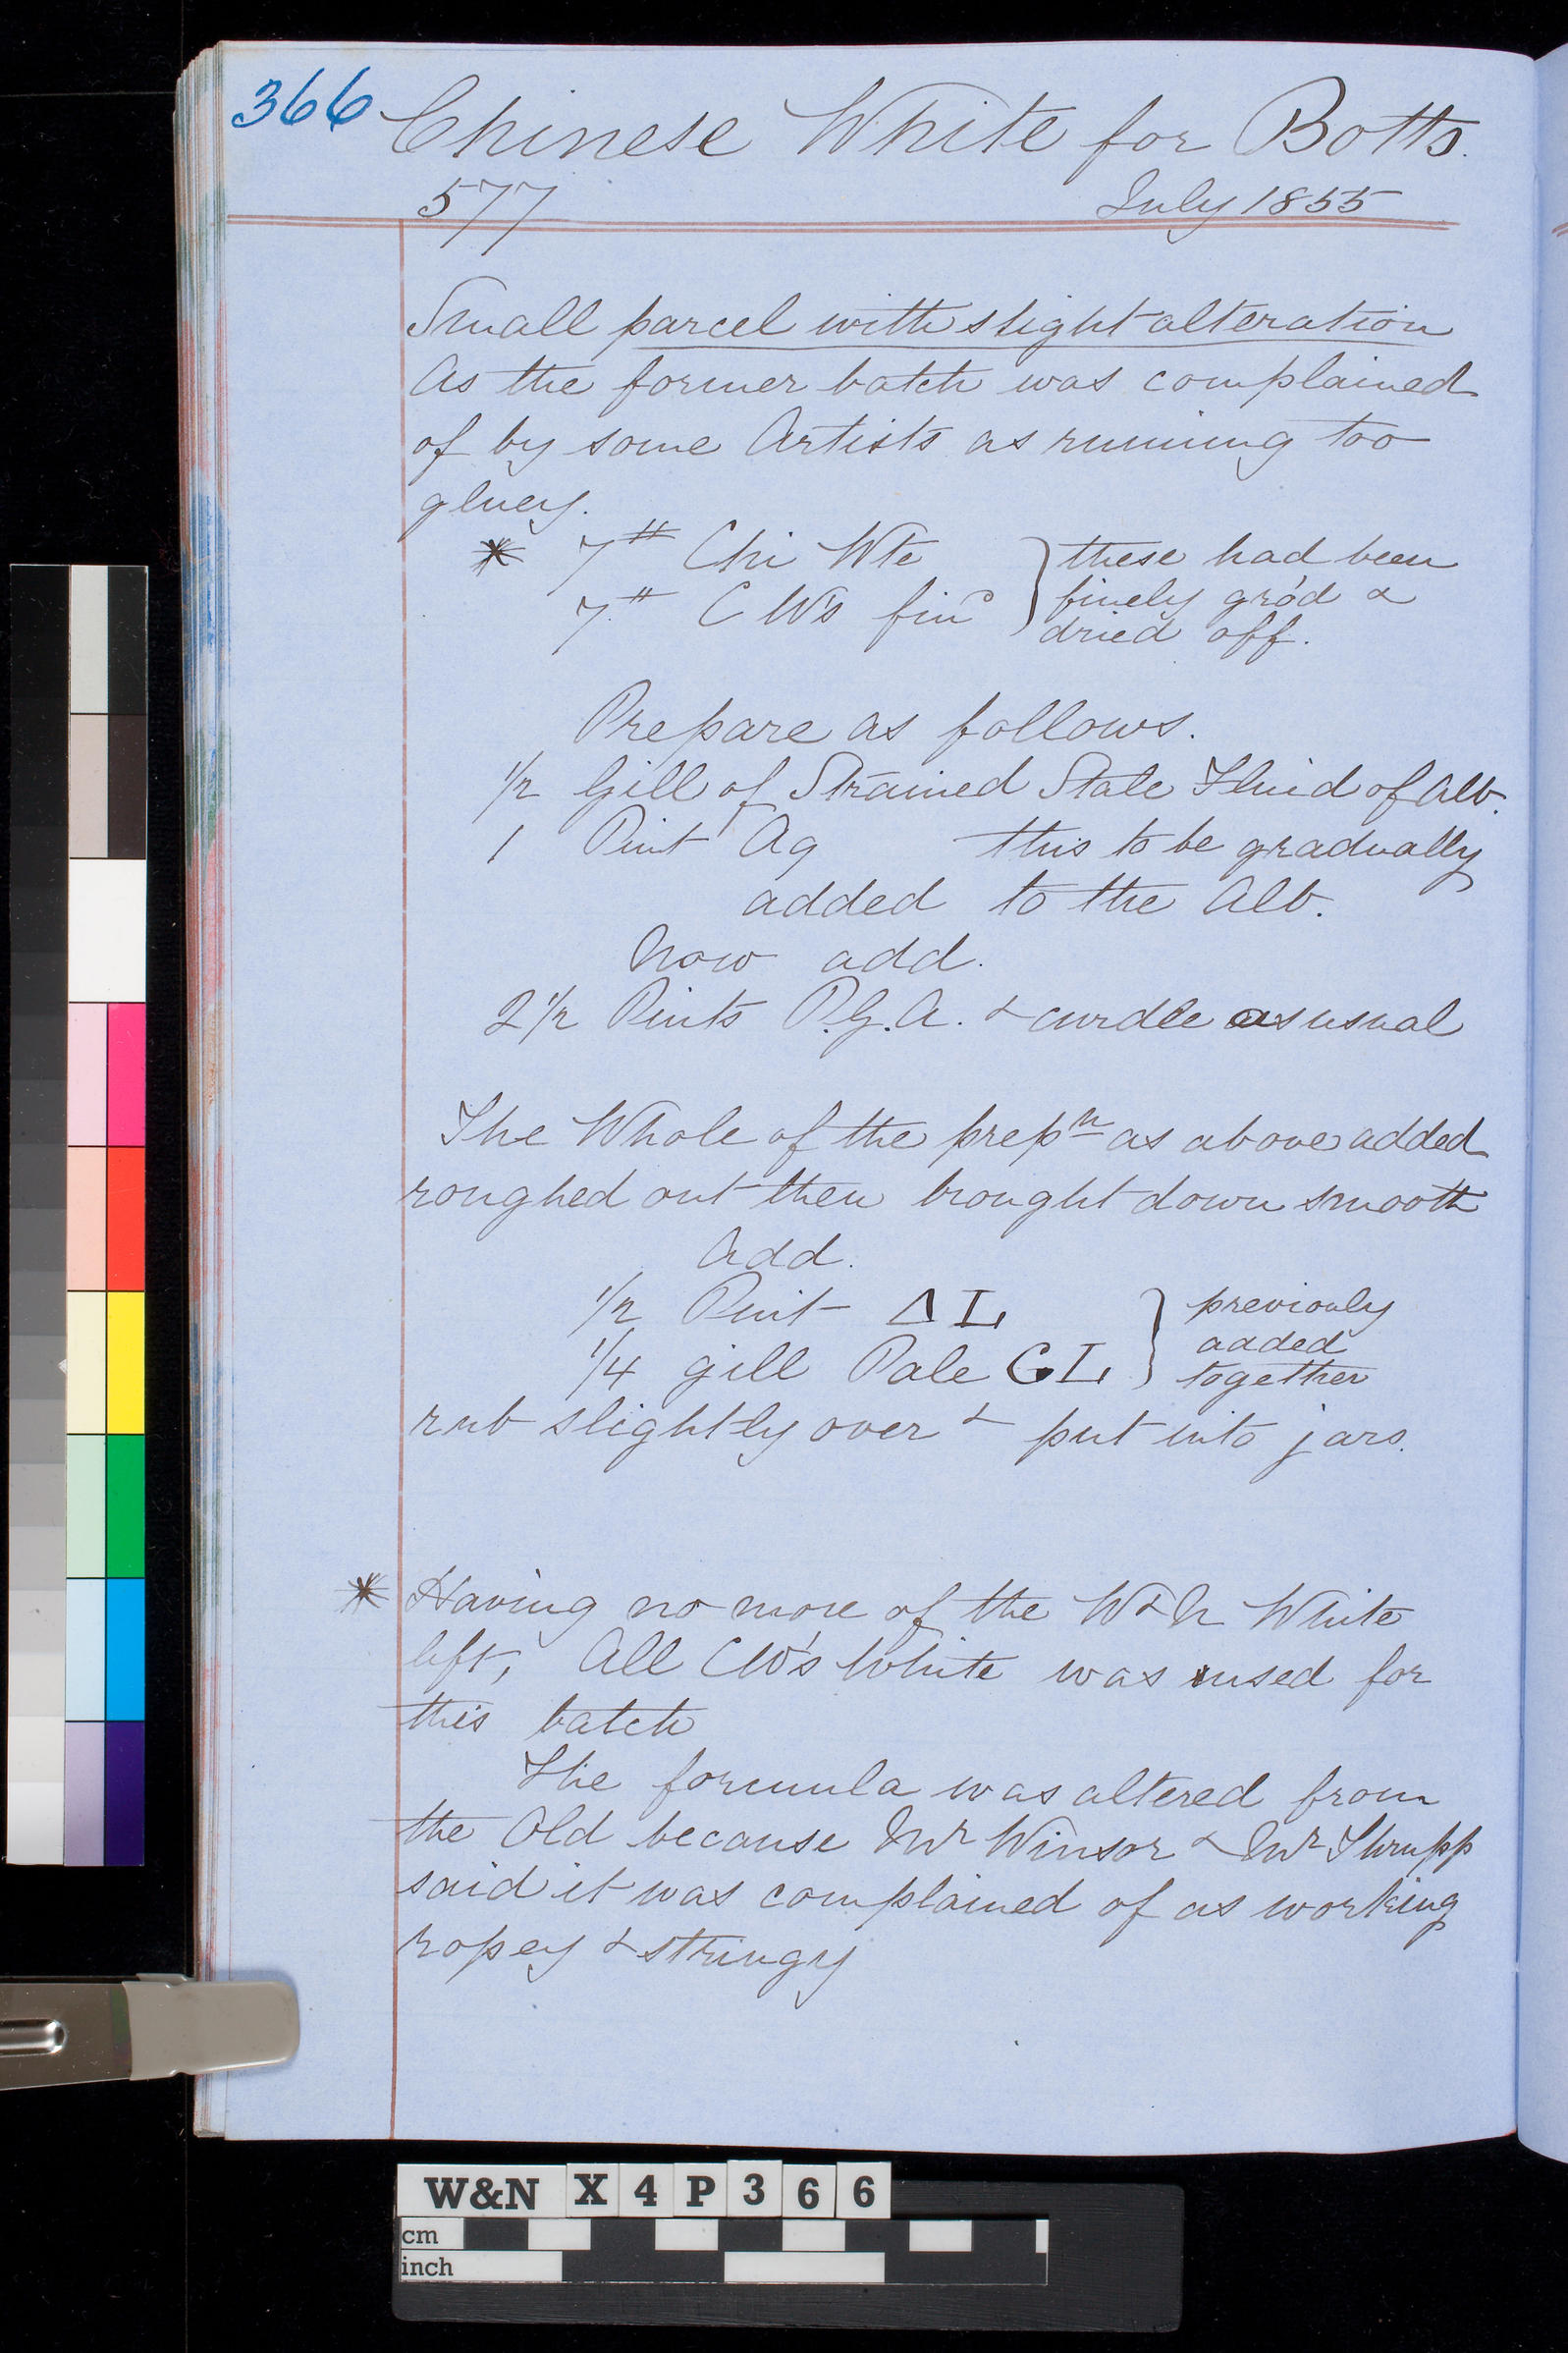 366 Chinese White for Botts.
577 July 1855
Small parcel with slight alteration
As the former batch was complained
of by some Artists as running too
gluey.
* 7 # Chi Wte } these had been
7 # C W's fin } finely gro'd &
dried off.
Prepare as follows.
1/2 Gill of Strained Stale Fluid of Alb.
1 Pint Aq this to be gradually
added to the Alb.
Now add.
2 1/2 Pints P.G.A. & curdle as usual
The Whole of the prepn as above added
roughed out then brought down smooth
Add.
1/2 Pint Δ L } previouly
added
1/4 gill Pale G L } together
rub slightly over & put into jars.
* Having no more of the W & N White
left, All CW's White was used for
this batch
The formula was altered from
the Old because Mr Winsor & Mr Thrupp
said it was complained of as working
ropey & stringy
W&N X 4 P 3 6 6
cm
inch